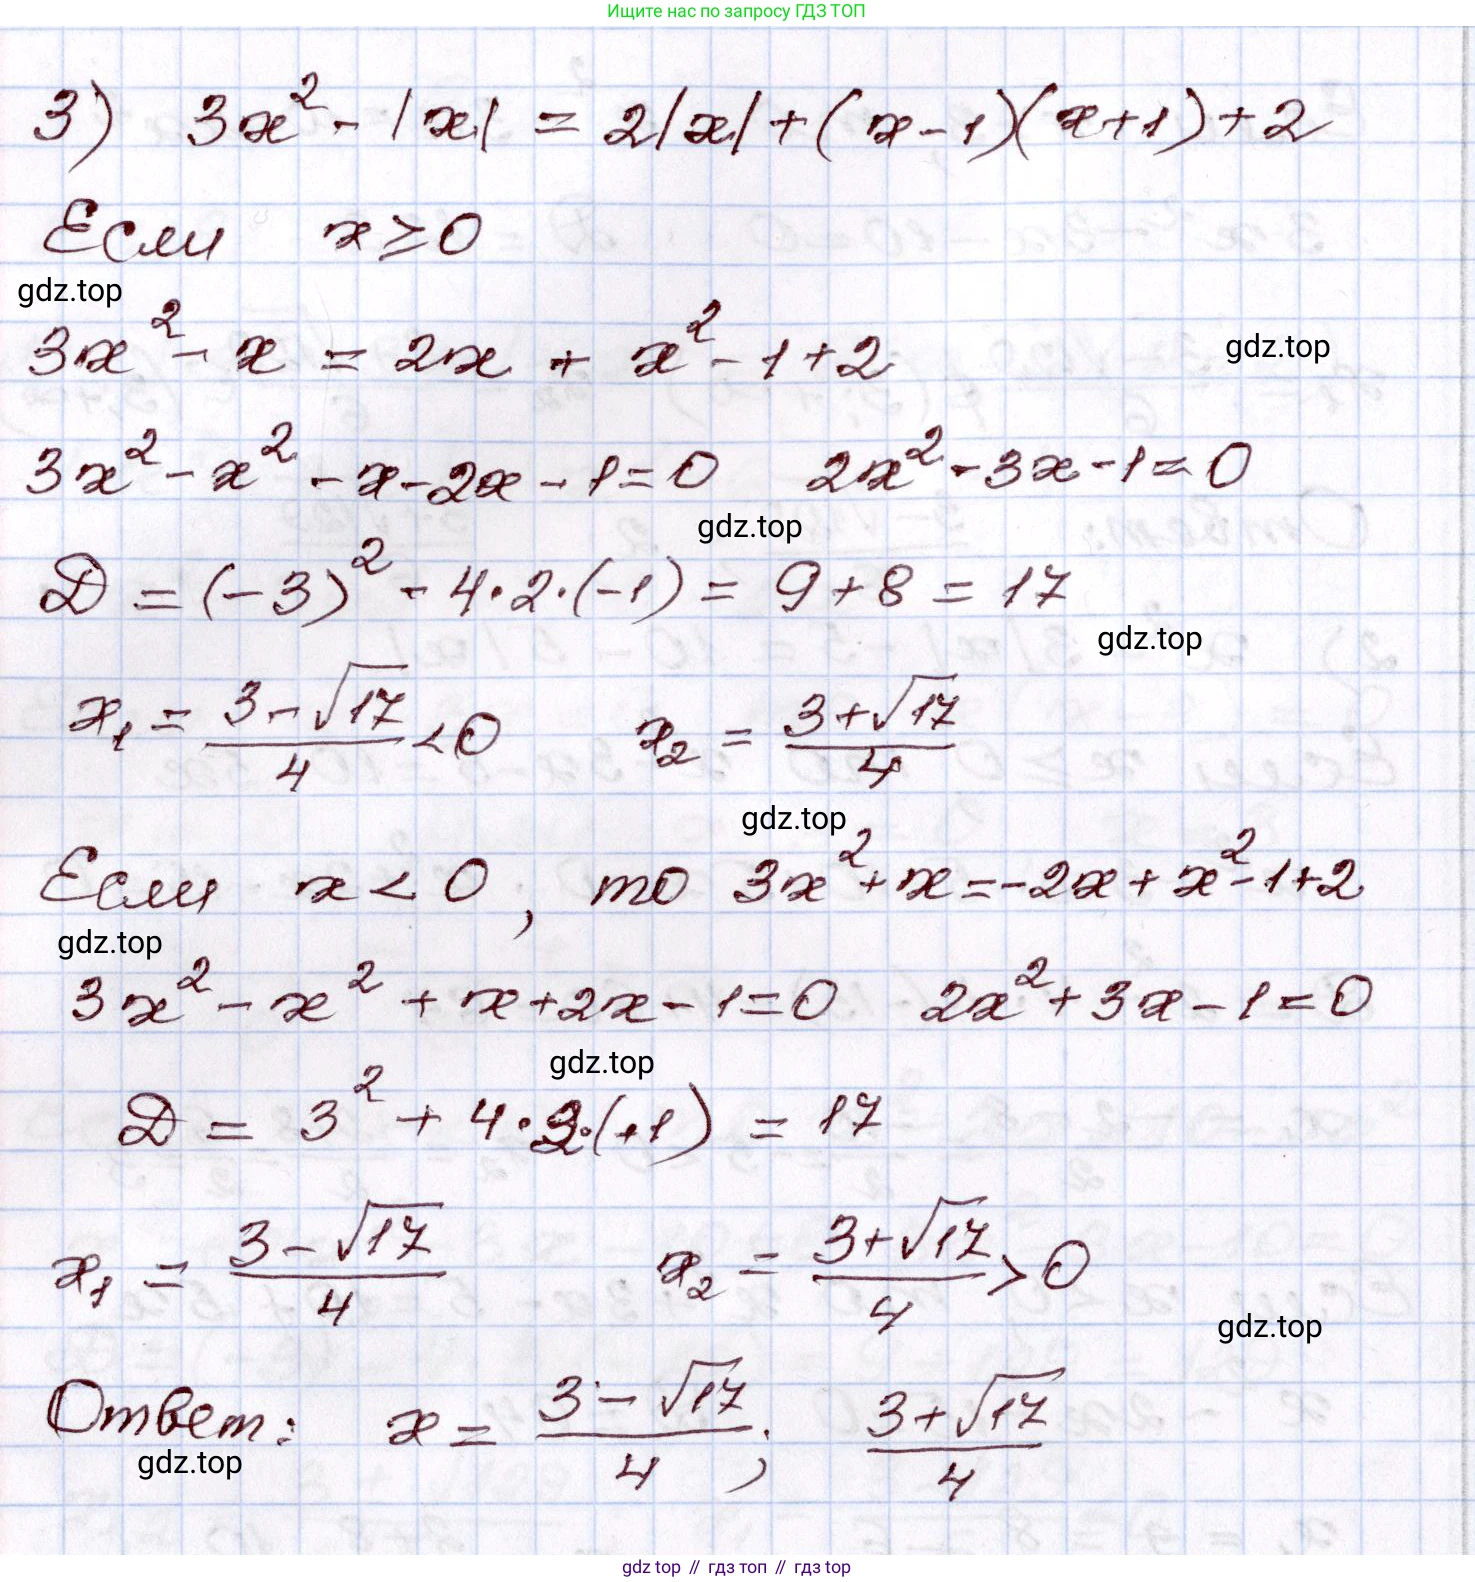 Ищите нас по запросу ГДЗ ТОП
3) 3x² - |x| = 2|x| + (x-1)(x+1) + 2
Если x ≥ 0
gdz.top
3x² - x = 2x + x² - 1 + 2
gdz.top
3x² - x² - x - 2x - 1 = 0 2x² - 3x - 1 = 0
gdz.top
D = (-3)² - 4·2·(-1) = 9 + 8 = 17
gdz.top
x₁ = (3 - √17)/4 < 0 x₂ = (3 + √17)/4
gdz.top
Если x < 0, то 3x² + x = -2x + x² - 1 + 2
gdz.top
3x² - x² + x + 2x - 1 = 0 2x² + 3x - 1 = 0
gdz.top
D = 3² + 4·2·(+1) = 17
x₁ = (3 - √17)/4 x₂ = (3 + √17)/4 > 0
gdz.top
Ответ: x = (3 - √17)/4; (3 + √17)/4
gdz.top
gdz top // гдз топ // гдз top